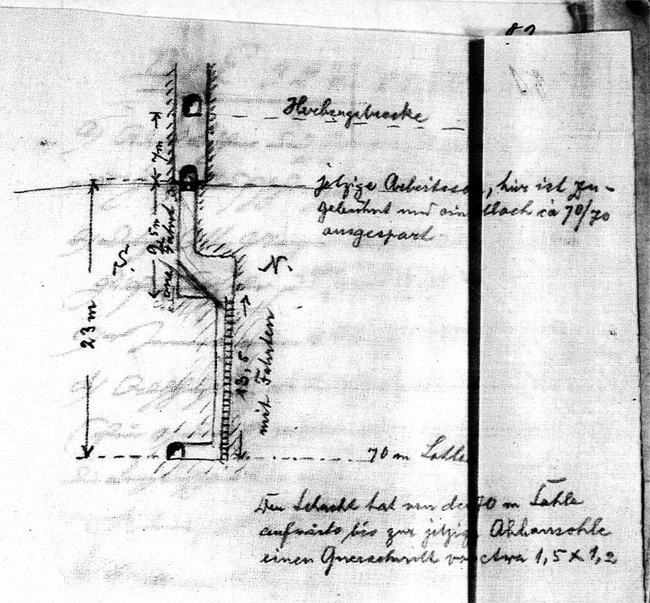 82
7m
jetzige Arbeitsso , hier ist zu-
gebühnt und ein loch ca 70/70
ausgespart.
9,5m
ohne Fahrt
S.
N.
23 m
13,5
mit Fahrten
70 m Sohle
Der Schacht hat von der 70 m Sohle
aufwärts bis zur jetzige Abbausohle
einen Querschnitt von etwa 1,5 x 1,2